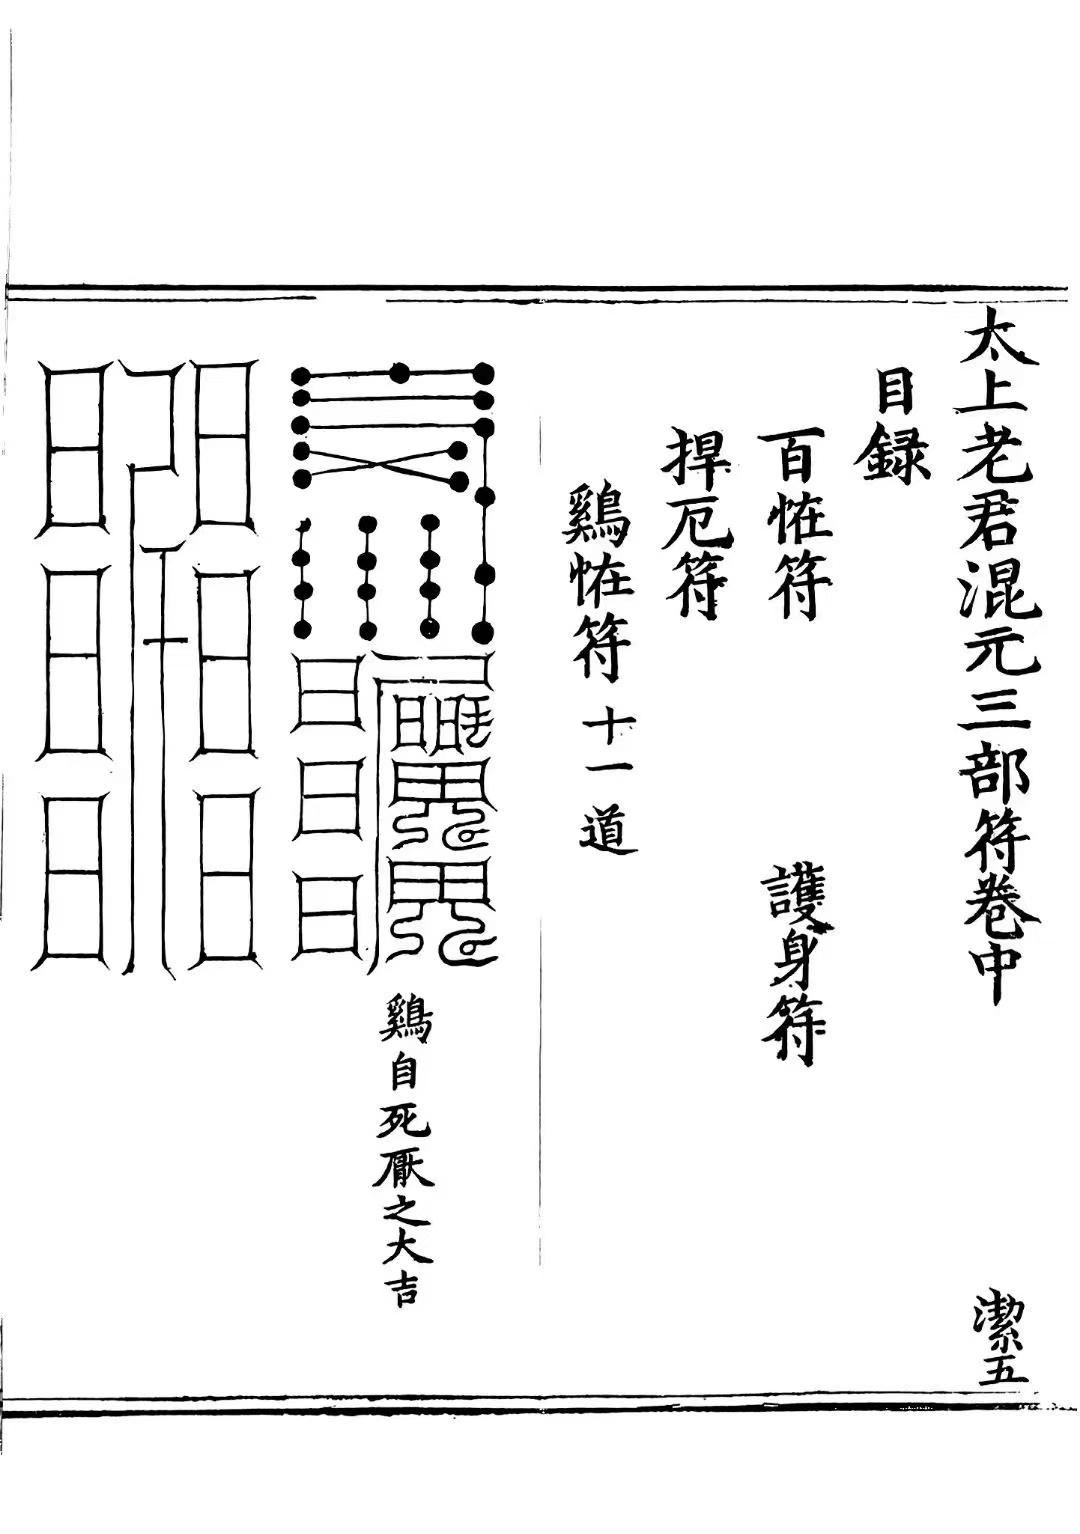 太上老君混元三部符卷中
潔五
目録
百恠符
護身符
捍厄符
鷄恠符十一道
鷄自死厭之大吉